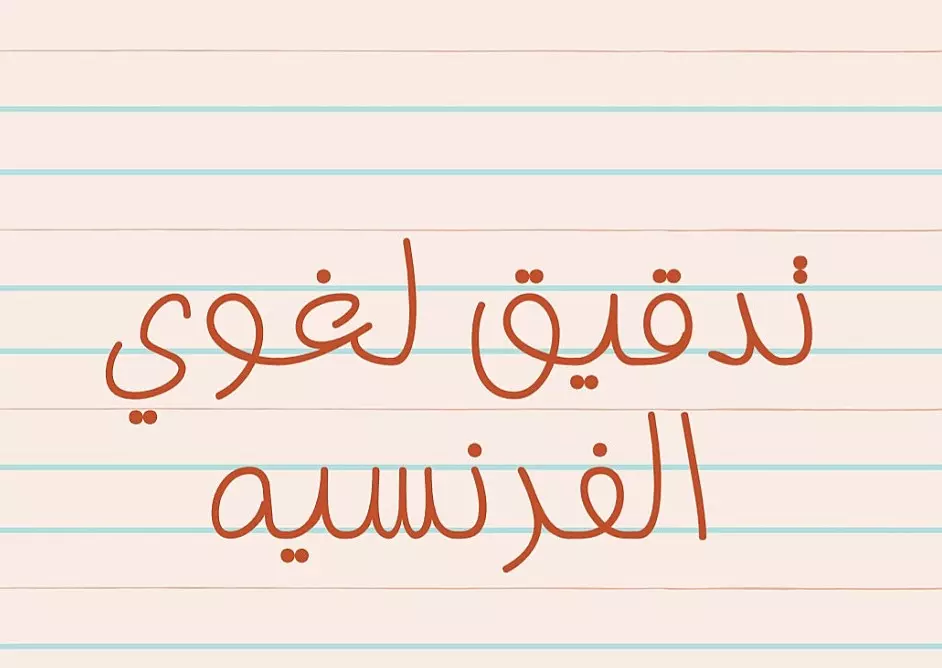 تدقيق لغوي
الفرنسيه